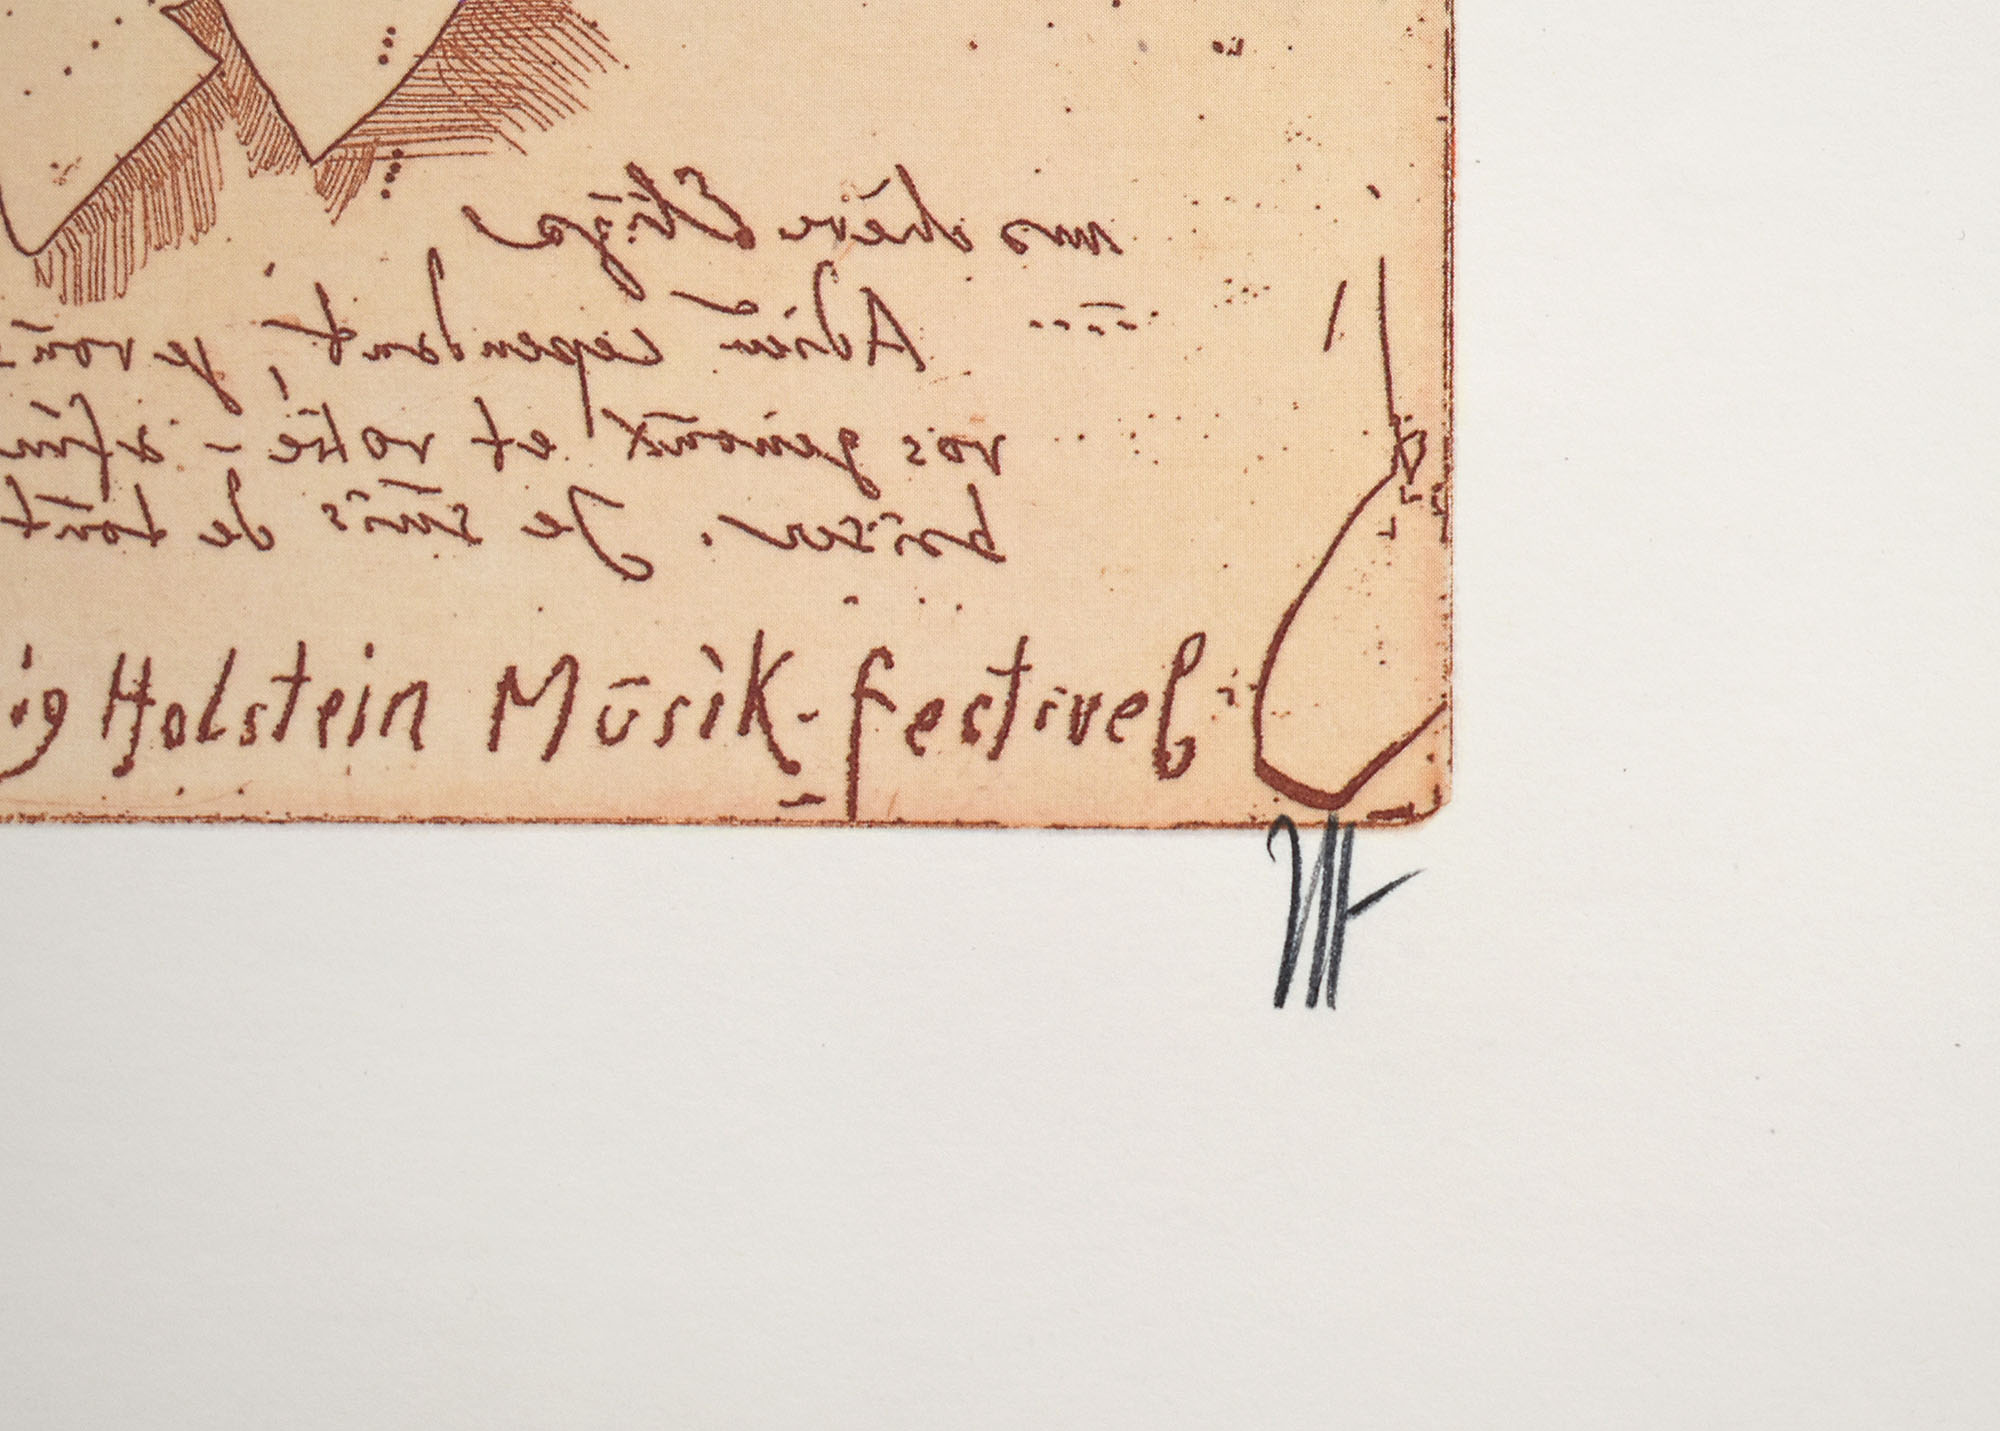 ma chère Eliza
Adieu cependant, je vous
vos genoux et votre - afin
baiser. Je suis de tout
ig Holstein Mūsik-festivel